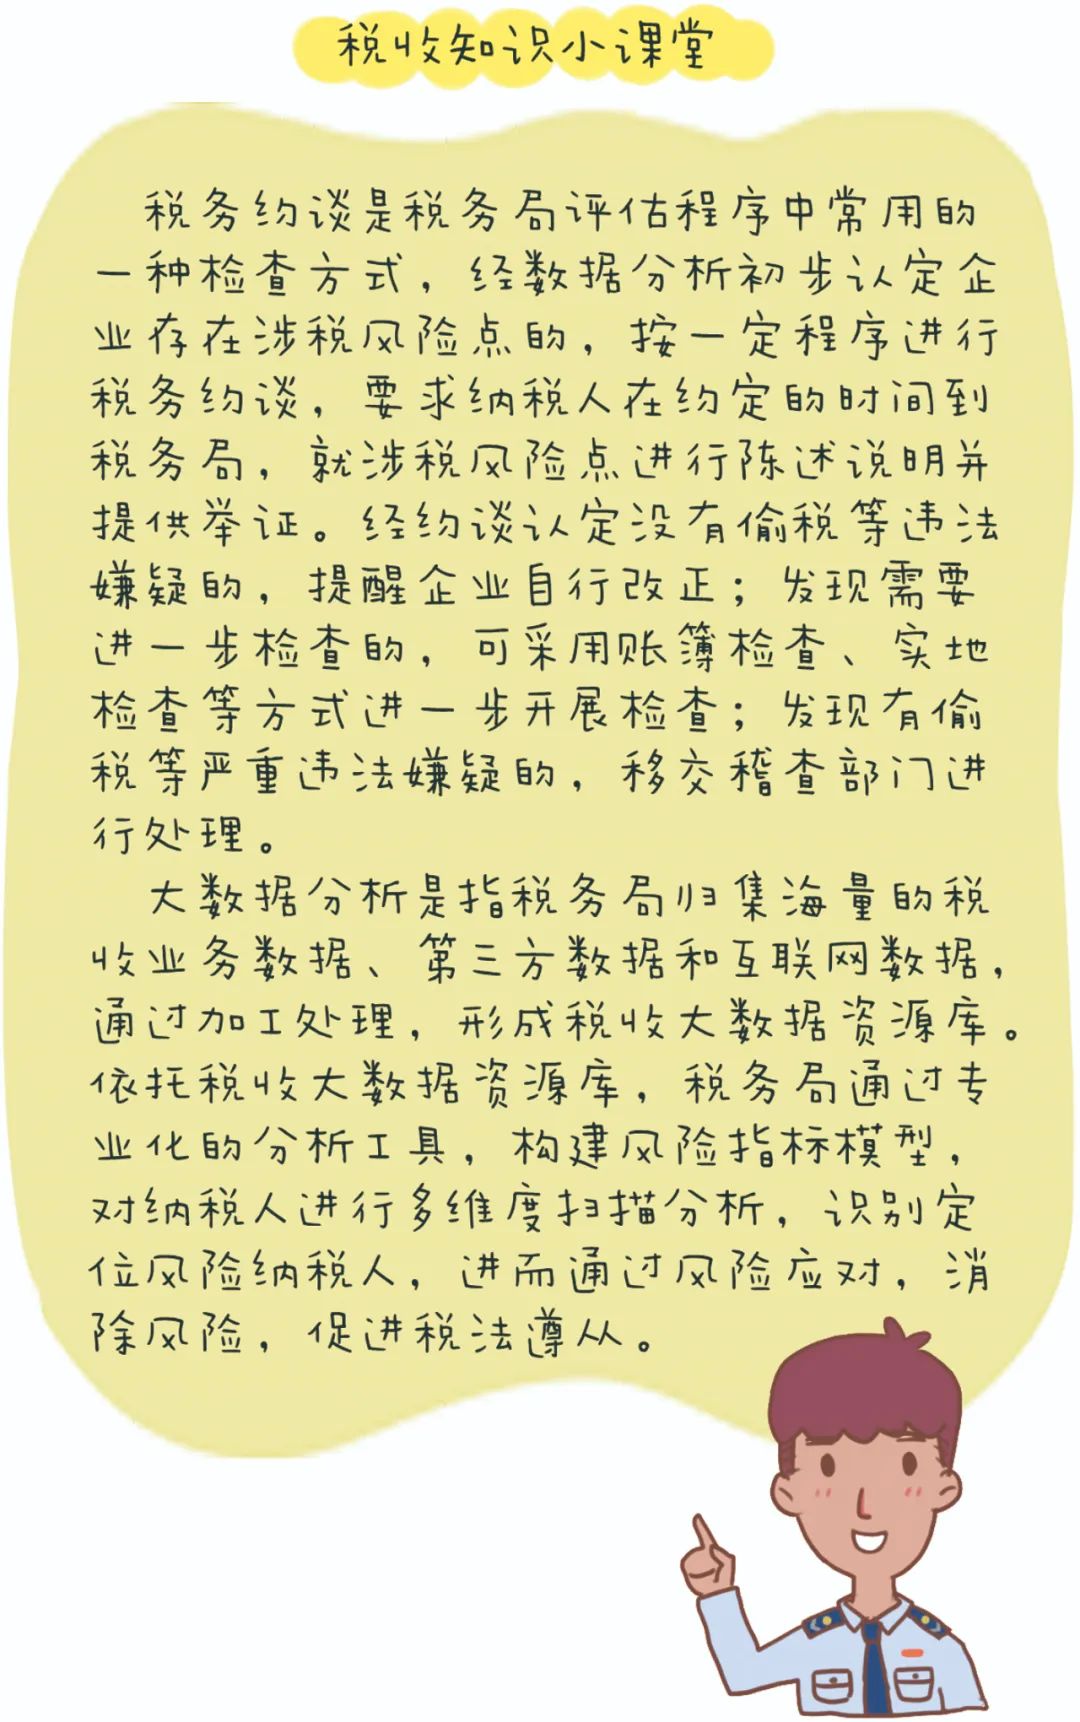 税收知识小课堂
税务约谈是税务局评估程序中常用的
一种检查方式，经数据分析初步认定企
业存在涉税风险点的，按一定程序进行
税务约谈，要求纳税人在约定的时间到
税务局，就涉税风险点进行陈述说明并
提供举证。经约谈认定没有偷税等违法
嫌疑的，提醒企业自行改正；发现需要
进一步检查的，可采用账簿检查、实地
检查等方式进一步开展检查；发现有偷
税等严重违法嫌疑的，移交稽查部门进
行处理。
大数据分析是指税务局归集海量的税
收业务数据、第三方数据和互联网数据，
通过加工处理，形成税收大数据资源库。
依托税收大数据资源库，税务局通过专
业化的分析工具，构建风险指标模型，
对纳税人进行多维度扫描分析，识别定
位风险纳税人，进而通过风险应对，消
除风险，促进税法遵从。